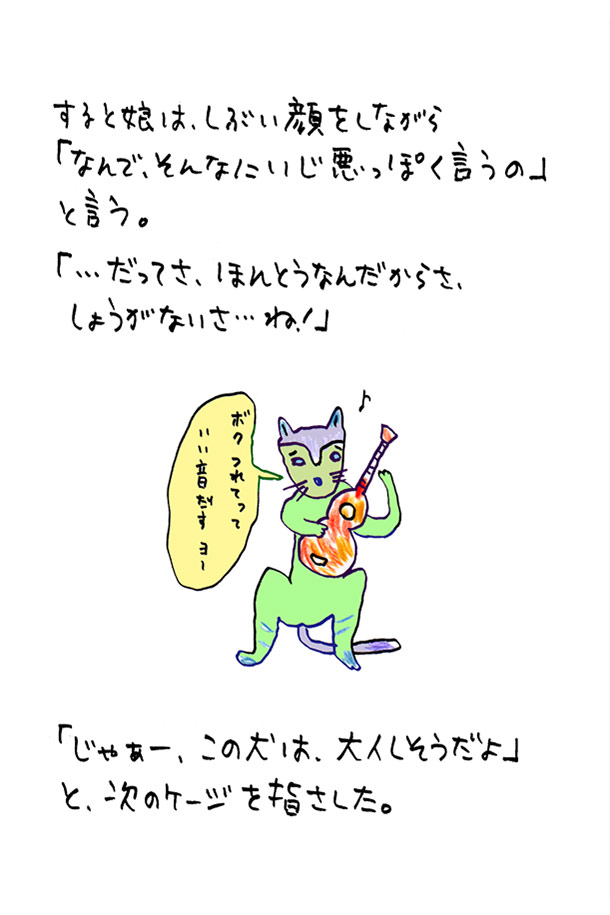 すると娘は、しぶい顔をしながら
「なんで、そんなにいじ悪っぽく言うの」
と言う。
「…だってさ、ほんとうなんだからさ、
しょうがないさ…ね！」
ボク つれてって
いい音だす ヨ〜
「じゃぁー、この犬は、大人しそうだよ」
と、次のケージを指さした。